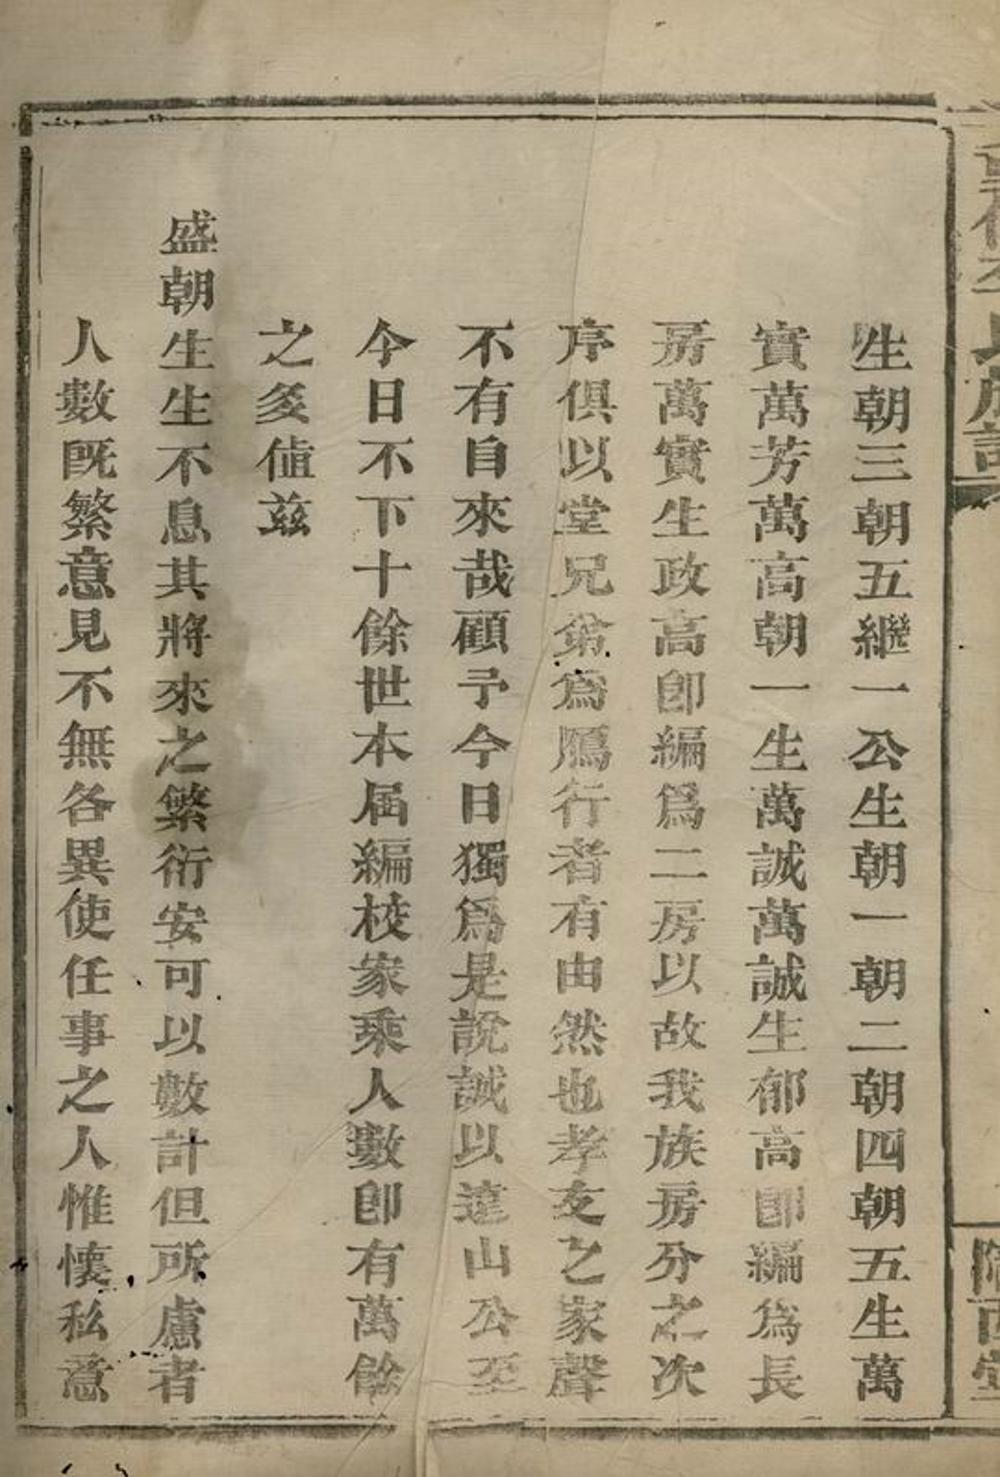 氏族譜
隴西堂
生朝三朝五繼一公生朝一朝二朝四朝五生萬
實萬芳萬高朝一生萬誠萬誠生郁高卽編爲長
房萬實生政高卽編爲二房以故我族房分之次
序俱以堂兄弟爲鴈行者有由然也孝友之家聲
不有自來哉顧予今日獨爲是說誠以達山公至
今日不下十餘世本届編校家乘人數卽有萬餘
之多值玆
盛朝生生不息其將來之繁衍安可以數計但所慮者
人數旣繁意見不無各異使任事之人惟懷私意